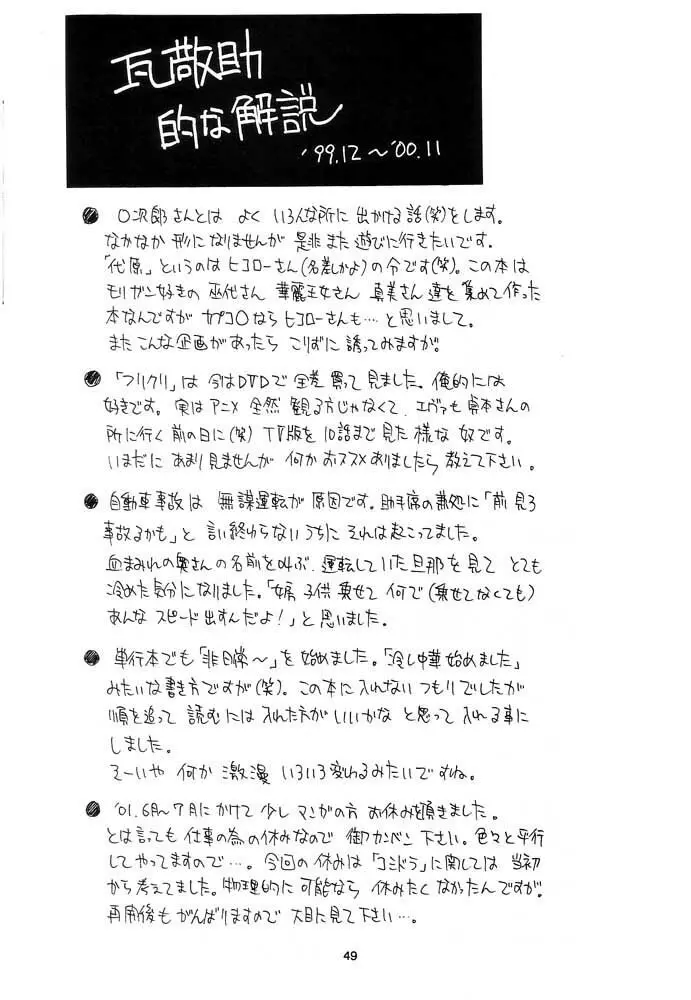 瓦敬助
的な解説
'99.12〜'00.11
● ○次郎さんとは よく いろんな所に 出かける話(笑)をします。
なかなか 形になりませんが 是非 また 遊びに行きたいです。
「代原」というのは ヒヨコローさん(名差しかよ)の令です(笑)。この本は
モリガン好きの 巫代さん 華麗王女さん 真美さん達を集めて作った
本なんですが カプコ○なら ヒヨコローさんも…と思いまして。
また こんな企画が あったら こりずに 誘ってみますが。
● 「フリクリ」は 今はDVDで 全巻 買って見ました。俺的には
好きです。実は アニメ 全然 観る方じゃなくて、エヴァも 貞本さんの
所に行く 前の日に(笑) TV版を 10話まで 見た 様な 奴です。
いまだに あまり見ませんが 何か おススメ ありましたら 教えて下さい。
● 自動車事故は 無謀運転が 原因です。助手席の 「前 見ろ
事故るかも」と 言い終わらない うちに それは起こってました。
血まみれの奥さんの名前を叫ぶ、運転していた旦那を見て とても
冷めた気分になりました。「嫁 子供 乗せて 何で(乗せてなくても)
あんな スピード 出すんだよ!」と 思いました。
● 単行本でも「非日常〜」を 始めました。「冷し中華 始めました」
みたいな書き方ですが(笑)。この本に入れない つもりでしたが
順を追って 読むには 入れた方が いいかな と思って 入れる事に
しました。
そーいや 何か 激漫 いろいろ変わるみたいですね。
● '01.6月〜7月にかけて 少し マンガの方 お休みを頂きました。
とは言っても 仕事の為の休みなので 御カンベン 下さい。色々と平行
してやってますので…。今回の休みは「コミドラ」に関しては 当初
から考えてました。物理的に可能なら 休みたく なかったんですが。
再開後も がんばりますので 大目に見て下さい…。
49